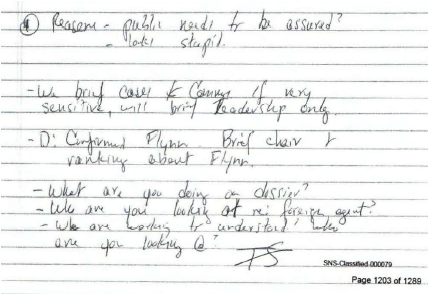 ① Reasons - public needs to be assured?
- looks stupid.
- We brief cases to Congress if very
sensitive, will brief leadership only.
- D: Confirmed Flynn. Brief chair &
ranking about Flynn.
- What are you doing on dossier?
- Who are you looking at re: foreign agent?
- We are working to understand who
are you looking @?
SNS-Classified-000079
Page 1203 of 1289